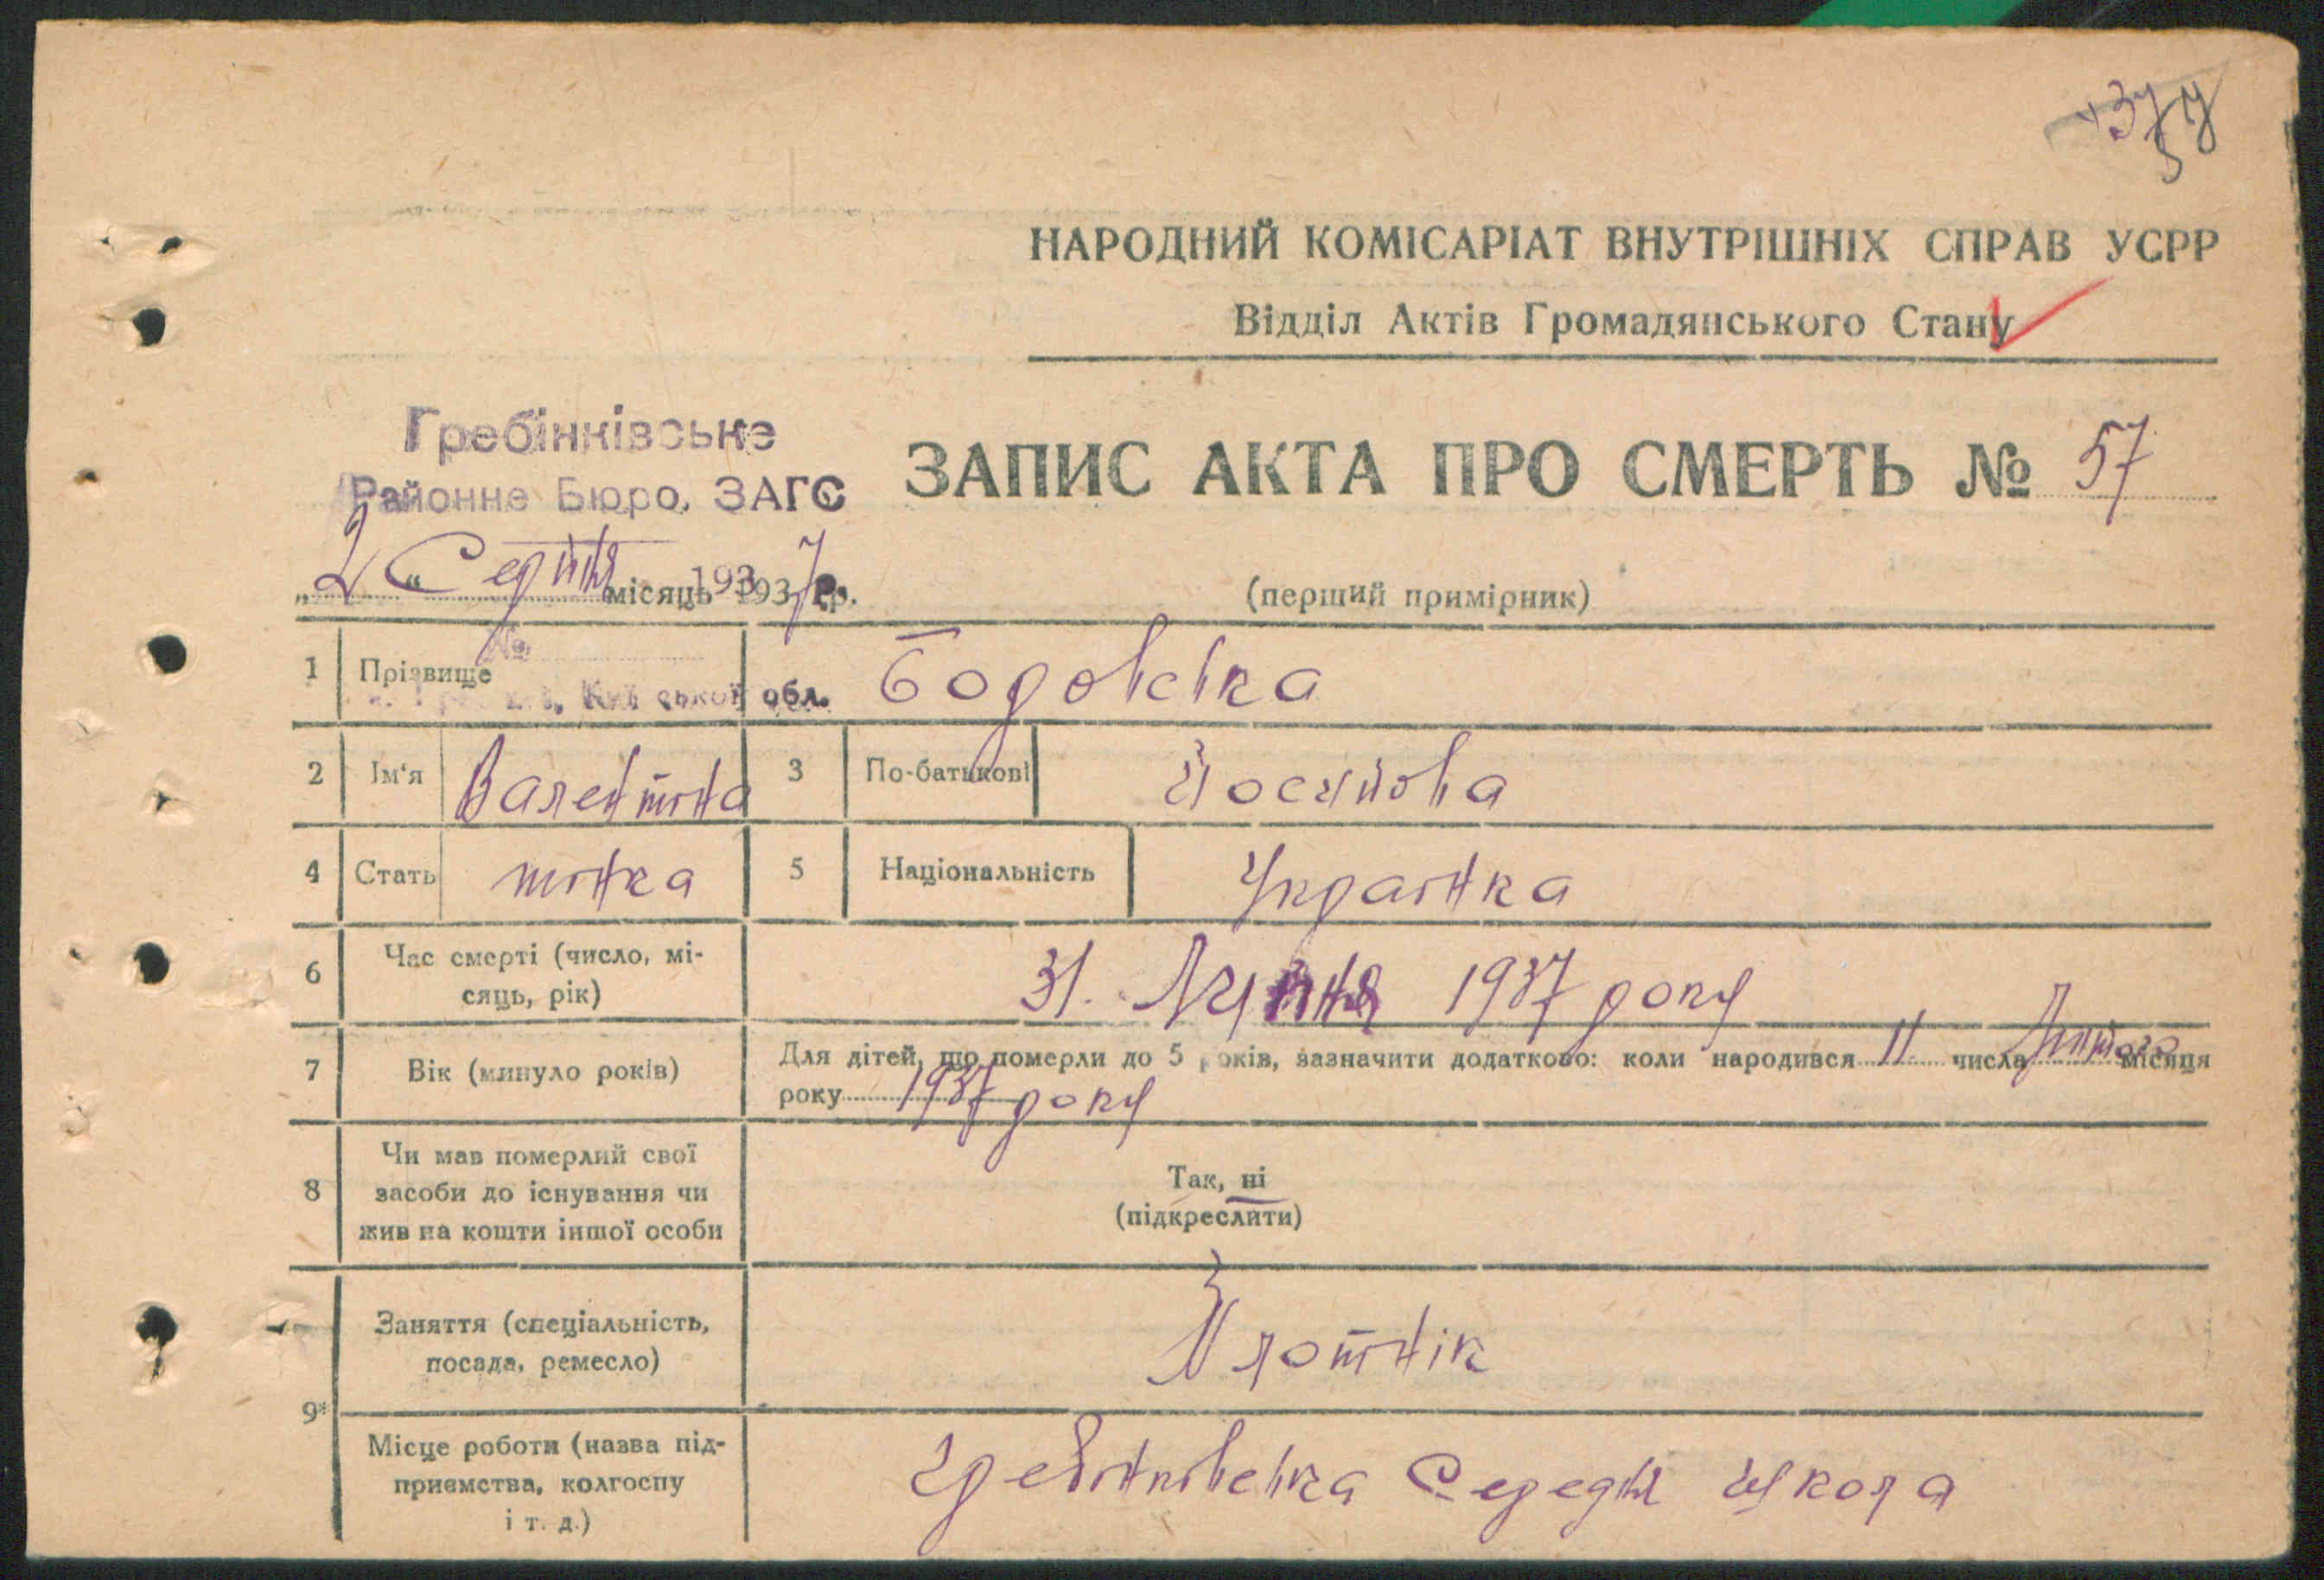 НАРОДНИЙ КОМІСАРІАТ ВНУТРІШНІХ СПРАВ УСРР
Відділ Актів Громадянського Стану
Гребінківське
Районне Бюро, ЗАГС
ЗАПИС АКТА ПРО СМЕРТЬ № 57
„2“ Серпня місяць 1937 р.
(перший примірник)
№
1 Прізвище Бодовська
Київської обл.
2 Ім‘я Валентина 3 По-батькові Йосипова
4 Стать жінка 5 Національність Українка
6 Час смерті (число, мі-
сяць, рік)
31. Липня 1937 року
7 Вік (минуло років) Для дітей, що померли до 5 років, зазначити додатково: коли народився 11 числа Лютого місяця
року 1937 року
8 Чи мав померлий свої
засоби до існування чи
жив на кошти іншої особи
Так, ні
(підкреслити)
9* Заняття (спеціальність,
посада, ремесло)
Плотнік
Місце роботи (назва під-
приємства, колгоспу
і т. д.)
Гребінківська Середня школа